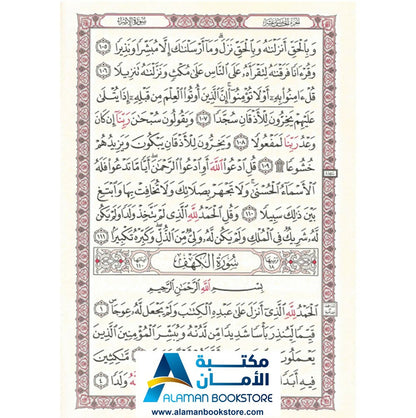 سورة الإسراء
الجزء الخامس عشر
وَبِالْحَقِّ أَنزَلْنَاهُ وَبِالْحَقِّ نَزَلَ وَمَا أَرْسَلْنَاكَ إِلَّا مُبَشِّرًا وَنَذِيرًا ١٠٥
وَقُرْءَانًا فَرَقْنَاهُ لِتَقْرَأَهُ عَلَى النَّاسِ عَلَى مُكْثٍ وَنَزَّلْنَاهُ تَنزِيلًا ١٠٦
قُلْ ءَامِنُوا بِهِ أَوْ لَا تُؤْمِنُوا إِنَّ الَّذِينَ أُوتُوا الْعِلْمَ مِن قَبْلِهِ إِذَا يُتْلَى
عَلَيْهِمْ يَخِرُّونَ لِلْأَذْقَانِ سُجَّدًا ١٠٧ وَيَقُولُونَ سُبْحَانَ رَبِّنَا إِن كَانَ
وَعْدُ رَبِّنَا لَمَفْعُولًا ١٠٨ وَيَخِرُّونَ لِلْأَذْقَانِ يَبْكُونَ وَيَزِيدُهُمْ
خُشُوعًا ۩ ١٠٩ قُلِ ادْعُوا اللَّهَ أَوِ ادْعُوا الرَّحْمَٰنَ أَيًّا مَا تَدْعُوا فَلَهُ
الْأَسْمَاءُ الْحُسْنَى وَلَا تَجْهَرْ بِصَلَاتِكَ وَلَا تُخَافِتْ بِهَا وَابْتَغِ
بَيْنَ ذَٰلِكَ سَبِيلًا ١١٠ وَقُلِ الْحَمْدُ لِلَّهِ الَّذِي لَمْ يَتَّخِذْ وَلَدًا وَلَمْ يَكُن
لَّهُ شَرِيكٌ فِي الْمُلْكِ وَلَمْ يَكُن لَّهُ وَلِيٌّ مِّنَ الذُّلِّ وَكَبِّرْهُ تَكْبِيرًا ١١١
سُورَةُ الْكَهْفِ
بِسْمِ اللَّهِ الرَّحْمَٰنِ الرَّحِيمِ
الْحَمْدُ لِلَّهِ الَّذِي أَنزَلَ عَلَى عَبْدِهِ الْكِتَابَ وَلَمْ يَجْعَل لَّهُ عِوَجًا ١
قَيِّمًا لِّيُنذِرَ بَأْسًا شَدِيدًا مِّن لَّدُنْهُ وَيُبَشِّرَ الْمُؤْمِنِينَ الَّذِينَ
يَعْمَلُونَ مَّاكِثِينَ
فِيهِ أَبَدًا وَلَدًا ٤
مكتبة
الأمان
ALAMAN BOOKSTORE
www.alamanbookstore.com